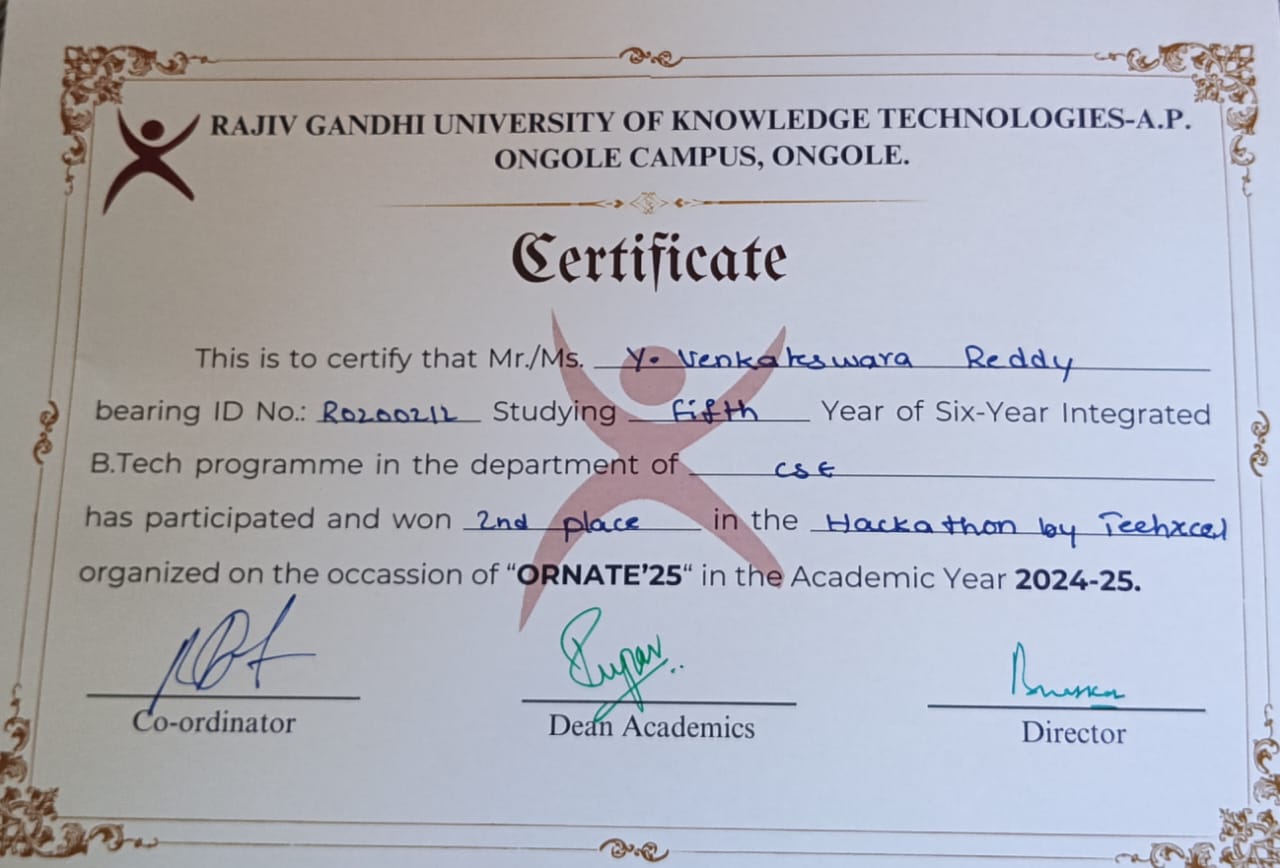 RAJIV GANDHI UNIVERSITY OF KNOWLEDGE TECHNOLOGIES-A.P.
ONGOLE CAMPUS, ONGOLE.
Certificate
This is to certify that Mr./Ms. Y. Venkateswara Reddy
bearing ID No.: RO200212 Studying fifth Year of Six-Year Integrated
B.Tech programme in the department of CSE
has participated and won 2nd place in the Hackathon by Techxcel
organized on the occassion of “ORNATE’25“ in the Academic Year 2024-25.
Co-ordinator Dean Academics Director